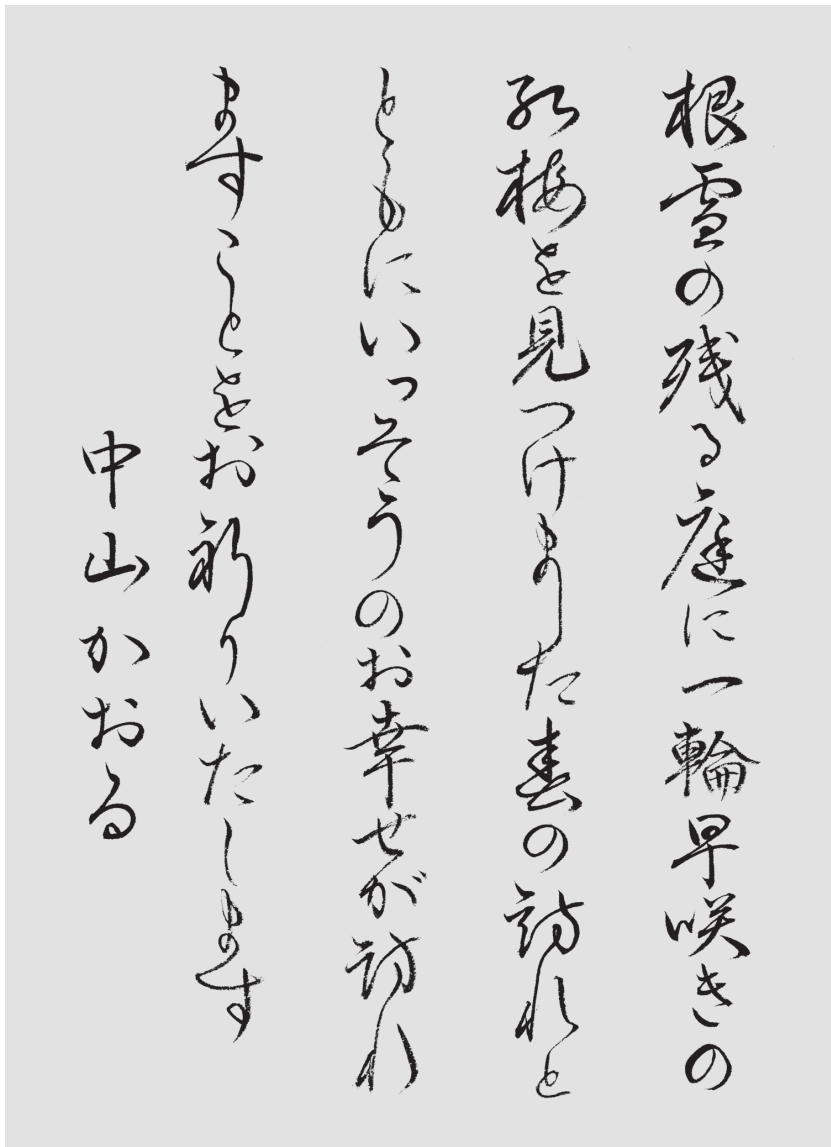 根雪の残る庭に一輪早咲きの
紅梅を見つけました春の訪れと
ともにいっそうのお幸せが訪れ
ますことをお祈りいたします
中山かおる